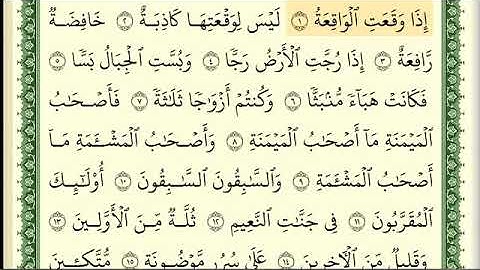 إِذَا وَقَعَتِ ٱلْوَاقِعَةُ ١ لَيْسَ لِوَقْعَتِهَا كَاذِبَةٌ ٢ خَافِضَةٌ
رَّافِعَةٌ ٣ إِذَا رُجَّتِ ٱلْأَرْضُ رَجًّا ٤ وَبُسَّتِ ٱلْجِبَالُ بَسًّا ٥
فَكَانَتْ هَبَآءً مُّنۢبَثًّا ٦ وَكُنتُمْ أَزْوَٰجًا ثَلَٰثَةً ٧ فَأَصْحَٰبُ
ٱلْمَيْمَنَةِ مَآ أَصْحَٰبُ ٱلْمَيْمَنَةِ ٨ وَأَصْحَٰبُ ٱلْمَشْـَٔمَةِ مَآ
أَصْحَٰبُ ٱلْمَشْـَٔمَةِ ٩ وَٱلسَّٰبِقُونَ ٱلسَّٰبِقُونَ ١٠ أُو۟لَٰٓئِكَ
ٱلْمُقَرَّبُونَ ١١ فِى جَنَّٰتِ ٱلنَّعِيمِ ١٢ ثُلَّةٌ مِّنَ ٱلْأَوَّلِينَ ١٣
وَقَلِيلٌ مِّنَ ٱلْـَٔاخِرِينَ ١٤ عَلَىٰ سُرُرٍ مَّوْضُونَةٍ ١٥ مُّتَّكِـِٔينَ